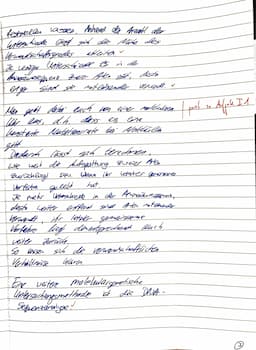 feststellen lassen. Anhand der Anzahl der
Unterschiede lässt sich die Nähe des
Verwandtschaftsgrades ableiten.
Je weniger Unterschiede es in der
Aminosäuresequenz zweier Arten gibt, desto
enger sind sie miteinander verwandt.
Man geht dabei auch von einer molekularen
Uhr aus, d.h. dass es eine
konstante Mutationsrate bei Molekülen
gibt.
passt zu Aufgabe I.1
Dadurch lässt sich berechnen,
wie weit die Aufspaltung zweier Arten
zurückliegt bzw. wann ihr letzter gemeinsamer
Vorfahre gelebt hat.
Je mehr Unterschiede in der Aminosäuresequenz,
desto weiter entfernt sind Arten miteinander
verwandt, ihr letzter gemeinsamer
Vorfahre liegt dementsprechend auch
weiter zurück.
So lassen sich die verwandtschaftlichen
Verhältnisse klären.
Eine weitere molekulargenetische
Untersuchungsmethode ist die DNA-
Sequenzierung.